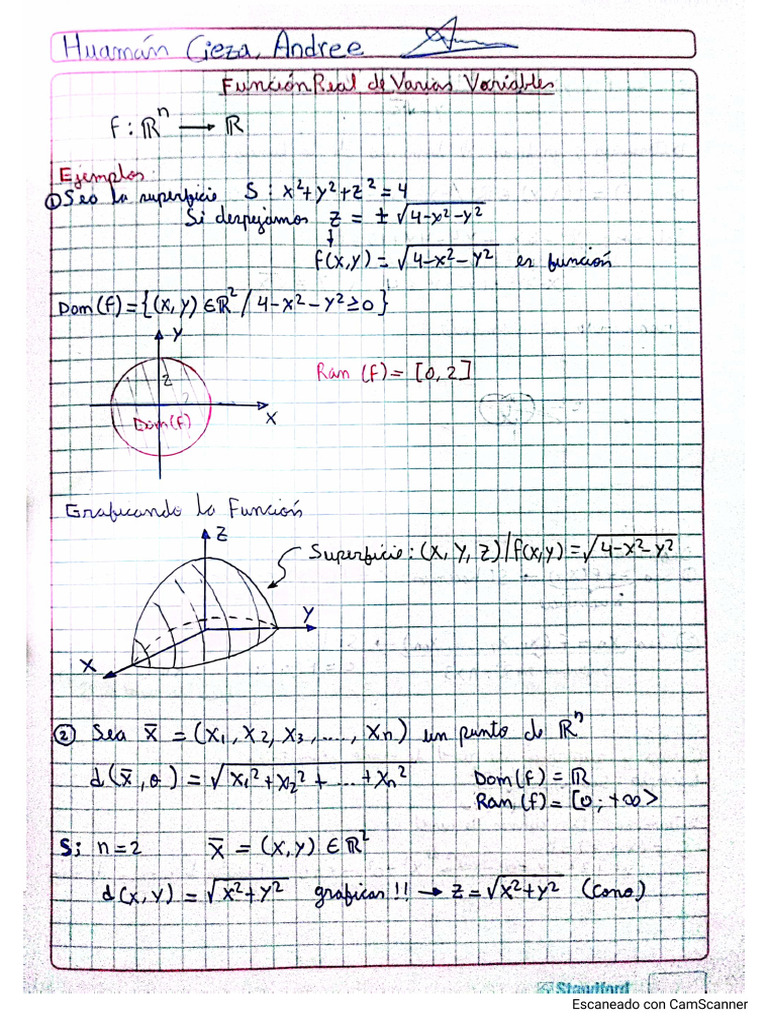 Huamán Cieza, Andree
Función Real de Varias Variables
f : ℝⁿ → ℝ
Ejemplos
① Sea la superficie S : x² + y² + z² = 4
Si despejamos z = ± √(4-x²-y²)
↓
f(x,y) = √(4-x²-y²) es función
Dom(f) = {(x,y) ∈ ℝ² / 4-x²-y² ≥ 0}
Y
2
2
Dom(f)
X
Ran (f) = [0,2]
Graficando la Función
Z
Superficie: (x, y, z) / f(x,y) = √(4-x²-y²)
Y
X
② Sea x̄ = (x₁, x₂, x₃, ...., xₙ) un punto de ℝⁿ
d(x̄, θ) = √(x₁² + x₂² + ... + xₙ²) Dom(f) = ℝ
Ran (f) = [0; +∞>
Si n=2 x̄ = (x,y) ∈ ℝ²
d(x,y) = √(x²+y²) graficar!! → z = √(x²+y²) (cono)
Standford
Escaneado con CamScanner